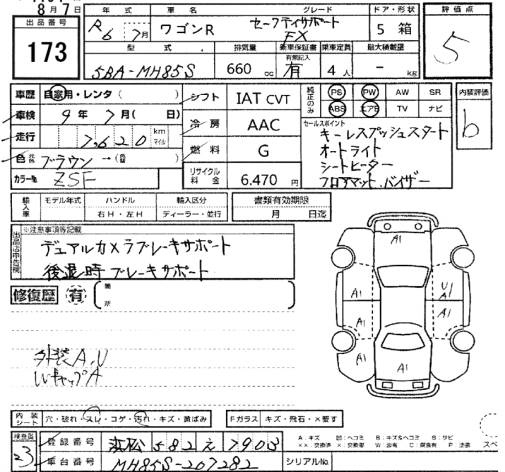 8月7日
出品番号 年式 車名 グレード ドア・形状 評価点
173 R6 7月 ワゴンR セーフティサポート FX 5 箱 5
型式 排気量 乗車保証書 乗車定員 最大積載量
有無記入
5BA-MH85S 660cc 有 4人 - kg
車歴 自家用・レンタ( ) シフト IAT CVT 純正のみ PS PW AW SR 内装評価
車検 9年7月(日) 冷房 AAC ABS エアB TV ナビ b
走行 7,620 km マイル 燃料 G セールスポイント
キーレスプッシュスタート
オートライト
色 ブラウン→( ) シートヒーター
カラー№ ZSF リサイクル料金 6.470円 フロアマット.バイザー
輸入車 モデル年式 ハンドル 輸入区分 書類有効期限
右H・左H ディーラー・並行 月 日迄
※注意事項等記載
出品店申告欄
デュアルカメラブレーキサポート
後退時ブレーキサポート
修復歴 有 (箇所
外装A,U
WキャップA
A1
A1 U1 A1
A1 A1
A1
内装シート 穴・破れ・スレ・コゲ・汚れ・キズ・黄ばみ Fガラス キズ・飛石・X要す
検査員 23 登録番号 浜松582え7903
車台番号 MH85S-207282 シリアル№